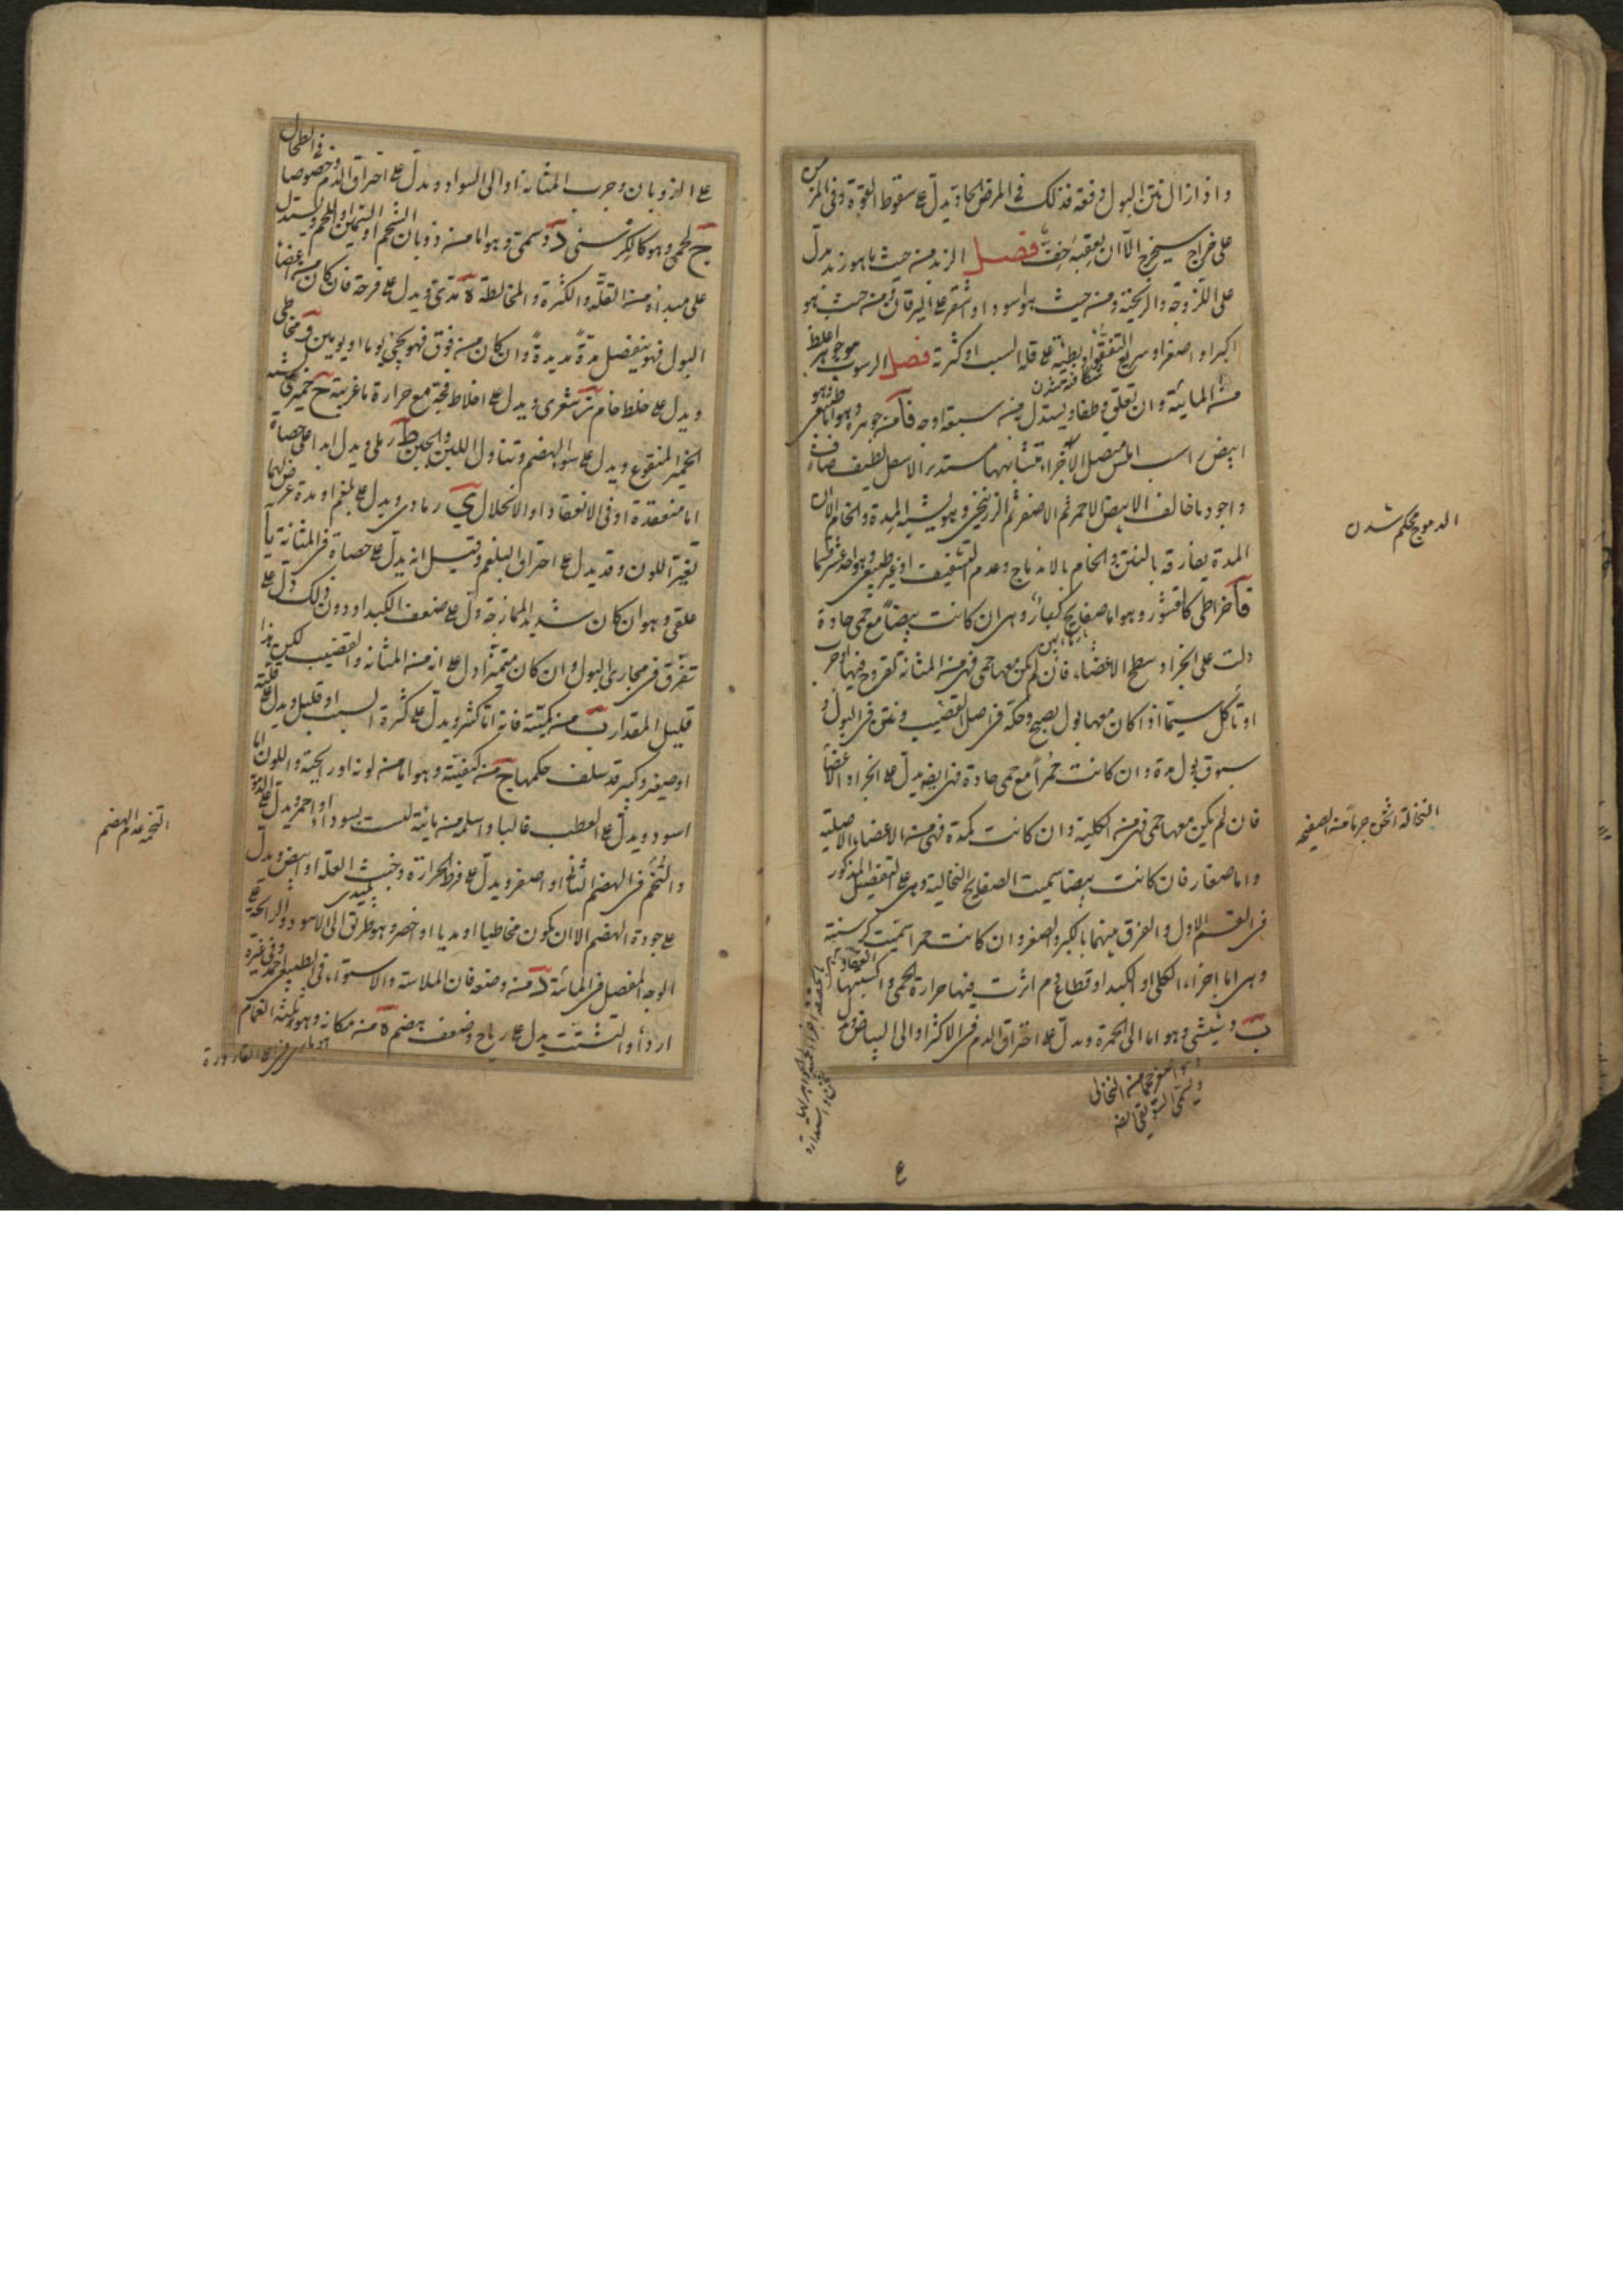 واذا زال نتن البول دفعة فذلك فى المرض الحاد يدل على سقوط القوة وفى المزمن
على خراج سيخرج الا ان يعقبه خفة فصل الزبد من حيث ما هو زبد يدل
على اللزوجة والريحية ومن حيث هو اسود او اشقر على اليرقان ومن حيث هو
اكبر او اصغر او سريع التفقؤ او بطيئه على قلة السبب او كثرته فصل الرسوب جوهر اغلظ
من المائية وان تعلق وطفا ويستدل منه سبعة اوجه فآ من جوهره وهو اما طبيعى وهو
ابيض راسب املس متصل الاجزاء متشابهها مستدير الاسفل لطيف
واجود ما خالف الابيض الاحمر ثم الاصفر ثم الزرنيخى وهو يشبه المدة والخام الا ان
المدة يفارقه بالنتن والخام بالاندماج وعدم التشفيف او غير طبيعى وهو احد عشر قسما
فآ خراطى كالقشور وهو اما صفايح كبار وهى ان كانت بيضا مع حمى حادة
دلت على انجراد سطح الاعضاء فان لم يكن معها حمى فهى من المثانة لقروح فيها او جرب
او تأكل سيما اذا كان معها بول نضيج وحكة فى اصل القضيب ونتن فى البول و
سبوق بول مدة وان كانت حمرا مع حمى حادة فهى ايضا يدل على انجراد الاعضا
فان لم يكن معها حمى فهى من الكلية وان كانت كمدة فهى من الاعضاء الاصلية
واما صغار فان كانت بيضا سميت الصفايح النخالية وهى على التفصيل المذكور
فى القسم الاول والفرق بينهما بالكبر والصغر وان كانت حمرا سميت كرسنية
وهى اما اجزاء الكلى او الكبد او قطاع دم اثرت فيها حرارة الحمى واكسبتها
بَ دشيشى وهو اما الى الحمرة ويدل على احتراق الدم فى الاكثر او الى البياض ويدل
الدموج محكم شدن
النخالة اثخن جرما من الصفيحة
على الذوبان وجرب المثانة او الى السواد ويدل على احتراق الدم وخصوصا فى الطحال
جَ لحمى وهو كالكرسنى دَ دسمى وهو اما من ذوبان الشحم او السمين او اللحم ويستدل
على مبدأه من القلة والكثرة والمخالطة هَ مدى ويدل على قرحة فان كان من اعضاء
البول فهو ينفصل مدة مديدة وان كان من فوق فهو يجئ يوما او يومين وَ مخاطى
ويدل على خلط خام زَ شعرى ويدل على اخلاط فجة مع حرارة ما غريبة حَ خميرى يشبه
الخمير المنقوع ويدل على سوء الهضم وتناول اللبن والجبن طَ رملى ويدل ابدا على حصاة
اما منعقدة او فى الانعقاد او الانحلال ىَ رمادى ويدل على بلغم او مدة عرض لهما
تغير اللون وقد يدل على احتراق البلغم وقيل انه يدل على حصاة فى المثانة يآ
علقى وهو ان كان شديد الممازجة دل على ضعف الكبد او دون ذلك دل على
تفرق فى مجارى البول وان كان متميزا دل على انه من المثانة والقضيب لكن هذا
قليل المقدار بَ من كميته فانه اما كثير ويدل على كثرة السبب او قليل ويدل على قلته
او صغير وكبير قد سلف حكمها جَ من كيفيته وهو اما من لونه او رايحته واللون اما
اسود ويدل على العطب غالبا واسلمه من مائية ليست بسوداء او احمر ويدل على الدم
والتخم فى الهضم الثانى او اصفر ويدل على فرط الحرارة وخبث العلة او ابيض ويدل
على جودة الهضم الا ان يكون مخاطيا او مديا او اخضر وهو طريق الى الاسود والرايحة على
الوجه المفصل فى المائية دَ من وضعه فان الملاسة والاستواء فى الطبيعى احمد وفى غيره
اردأ والتشتت يدل على رياح وضعف هضم هَ من مكانه وهو ثلثة الغمام
التخم عدم الهضم